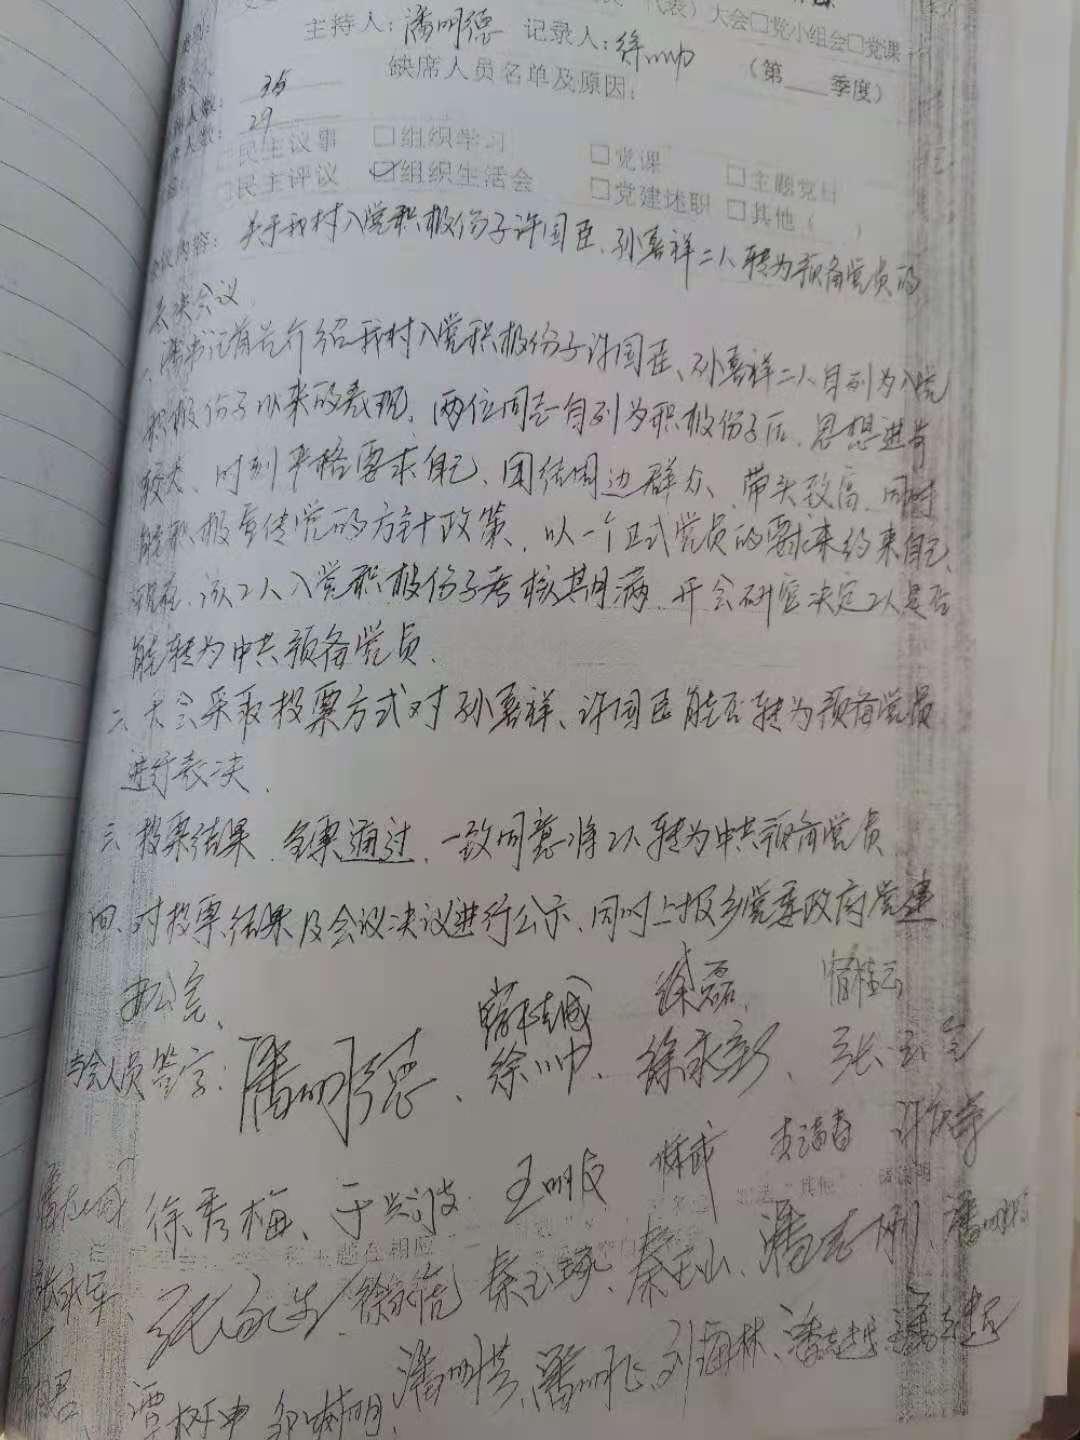 代表）大会□党小组会□党课
主持人：潘明德 记录人：徐帅 （第___季度）
缺席人员名单及原因：
人数：35
人数：29
□民主议事 □组织学习 □党课 □主题党日
□民主评议 ☑组织生活会 □党建述职 □其他（ ）
议内容：关于我村入党积极份子许国臣、孙嘉祥二人转为预备党员的
表决会议.
一、潘书记首先介绍我村入党积极份子许国臣、孙嘉祥二人自列为入党
积极份子以来的表现，两位同志自列为积极份子后，思想进步
较大、时刻严格要求自己、团结周边群众、带头致富、同时
能积极宣传党的方针政策，以一个正式党员的要求来约束自己，
现在，该2人入党积极份子考核其月满，开会研究决定2人是否
能转为中共预备党员.
二、大会采取投票方式对孙嘉祥、许国臣能否转为预备党员
进行表决.
三、投票结果，全票通过，一致同意将2人转为中共预备党员
四、对投票结果及会议决议进行公示、同时上报乡党委政府党建
办公室、
徐磊、
与会人员签字：潘明德、徐帅、徐永彰、张玉
徐秀梅、于兴波 王明友
张永军、徐永信 秦玉琢、秦玉山、潘志刚、
谭树申 潘明芳、潘明飞、刘海林、潘志越